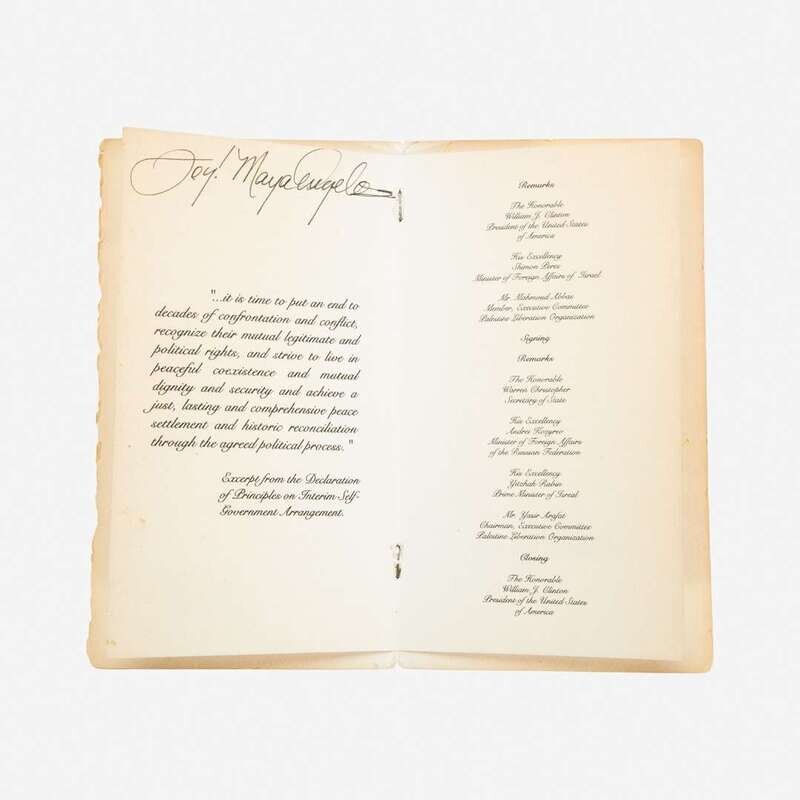 Joy! Maya Angelou
"...it is time to put an end to
decades of confrontation and conflict,
recognize their mutual legitimate and
political rights, and strive to live in
peaceful coexistence and mutual
dignity and security and achieve a
just, lasting and comprehensive peace
settlement and historic reconciliation
through the agreed political process."
Excerpt from the Declaration
of Principles on Interim Self-
Government Arrangement.
Remarks
The Honorable
William J. Clinton
President of the United States
of America
His Excellency
Shimon Peres
Minister of Foreign Affairs of Israel
Mr. Mahmoud Abbas
Member, Executive Committee
Palestine Liberation Organization
Signing
Remarks
The Honorable
Warren Christopher
Secretary of State
His Excellency
Andrei Kozyrev
Minister of Foreign Affairs
of the Russian Federation
His Excellency
Yitzhak Rabin
Prime Minister of Israel
Mr. Yasir Arafat
Chairman, Executive Committee
Palestine Liberation Organization
Closing
The Honorable
William J. Clinton
President of the United States
of America